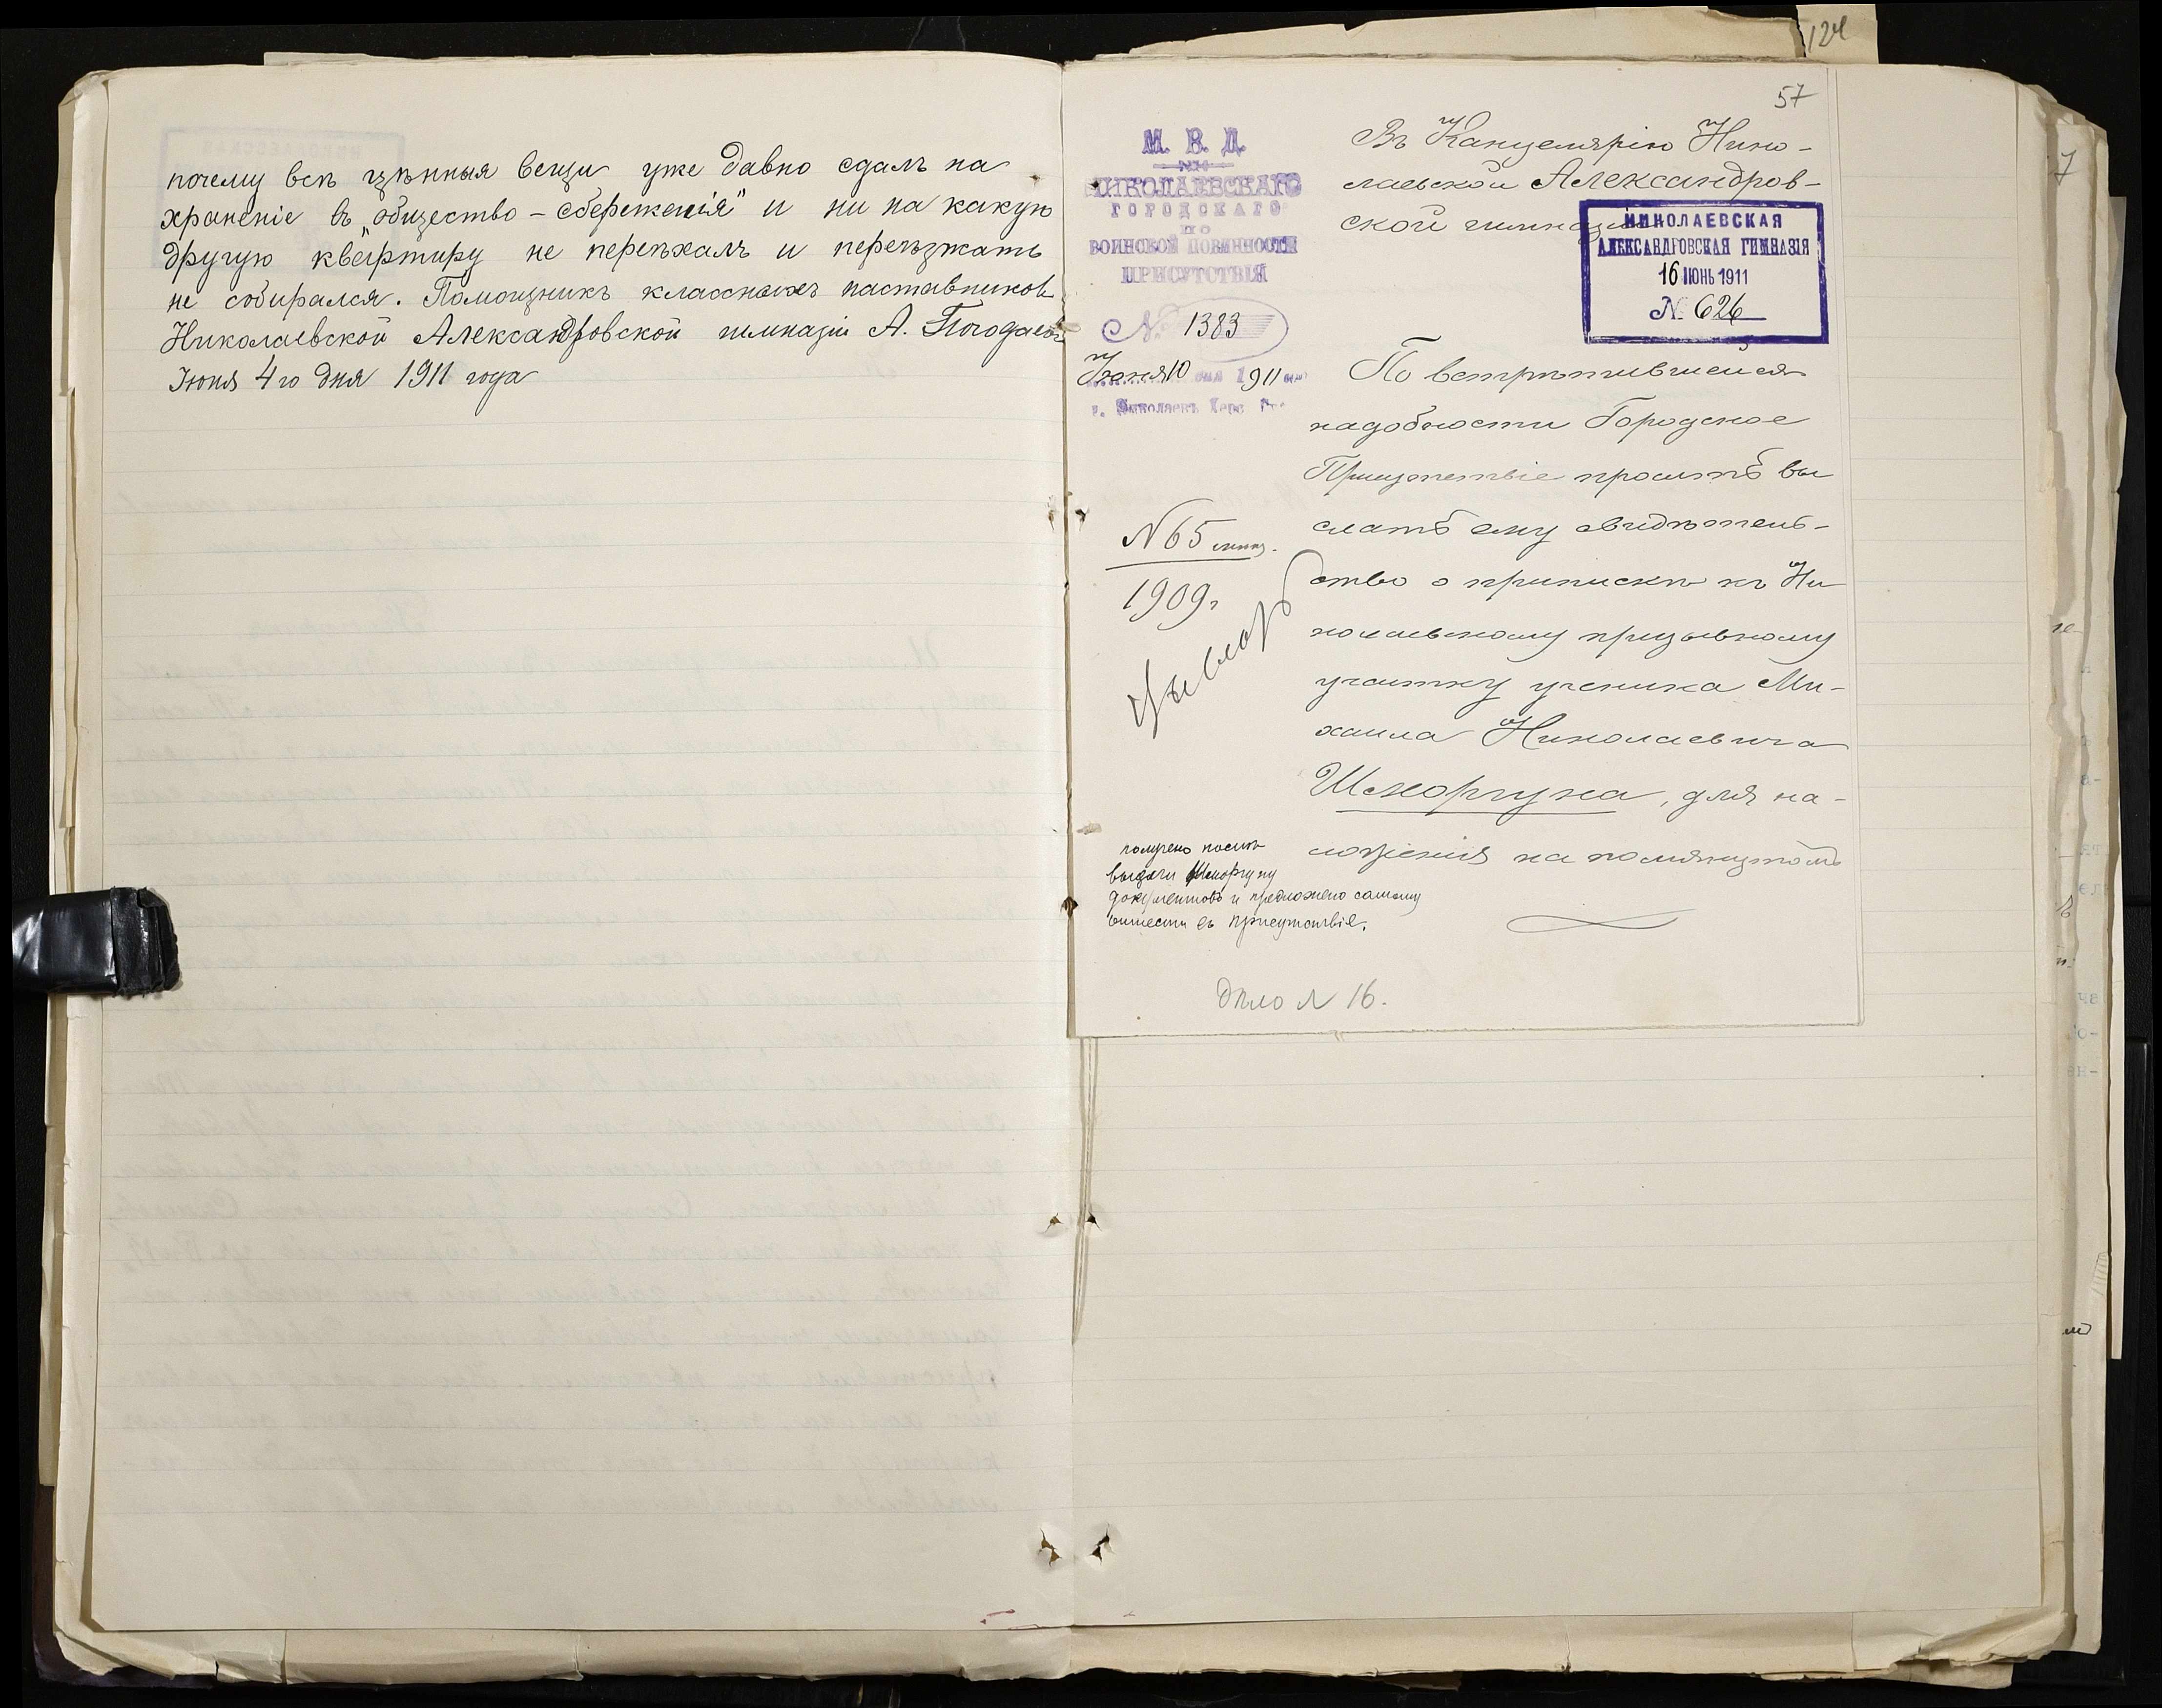 почему всѣ цѣнныя вещи уже давно сдалъ на
храненіе въ „общество-сбереженія" и ни на какую
другую квартиру не переѣхалъ и переѣзжать
не собирался. Помощникъ классныхъ наставниковъ
Николаевской Александровской гимназіи А. Погодаевъ
Іюня 4го дня 1911 года
124
57
М. В. Д.
НИКОЛАЕВСКАГО
ГОРОДСКАГО
ПО
ВОИНСКОЙ ПОВИННОСТИ
ПРИСУТСТВІЯ
№ 1383
Іюня 10 дня 1911 года
г. Николаевъ Херс. Губ.
Въ Канцелярію Нико-
лаевской Александров-
ской гимназіи
НИКОЛАЕВСКАЯ
АЛЕКСАНДРОВСКАЯ ГИМНАЗІЯ
16 ІЮНЬ 1911
№ 626
По встрѣтившейся
надобности Городское
Присутствіе проситъ вы
слать ему свидѣтель-
ство о припискѣ къ Ни
колаевскому призывному
участку ученика Ми-
хаила Николаевича
Шкоргуна, для на-
ложенія на помянутомъ
N 65
1909г
получено послѣ
выдачи Шкоргуну
документовъ и предложено самому
внести въ присутствіе.
дѣло N 16.
7